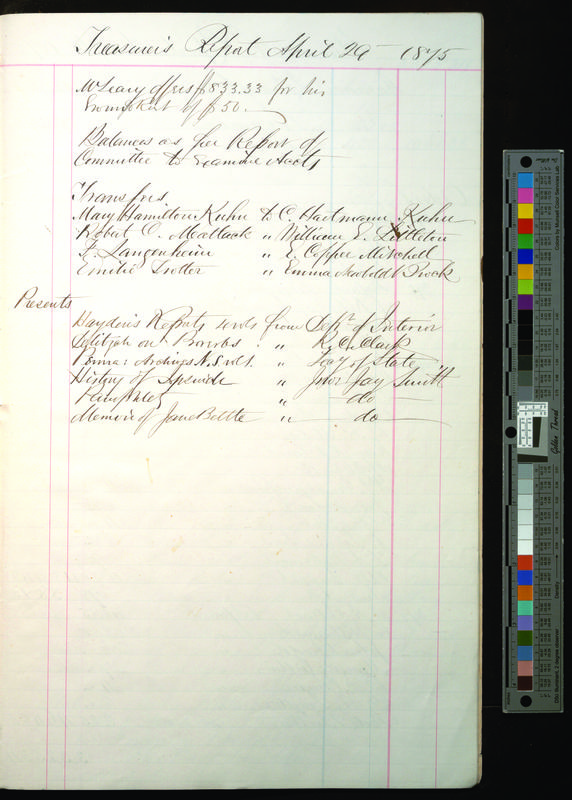 Treasurer's Report April 29 1875
McLeary offers $833.33 for his
of $50.
Balances as per Report of
Committee to Examine Accts
Transfers.
Mary Hamilton Kuhn to C. Hartmann Kuhn
Robert O. Matlack " William E. Littleton
F. Langenheim " E. Coppee Mitchell
Emilie Trotter " Emma
Presents
Hayden's Reports 4 vols from Dept of Interior
on Bombs " R. C. Clark
Penna: Archives N.S. vol 1. " Secy of State
History of Ipswich " Jno: Jay Smith
Pamphlet " do
Memoir of Jane Bettle " do